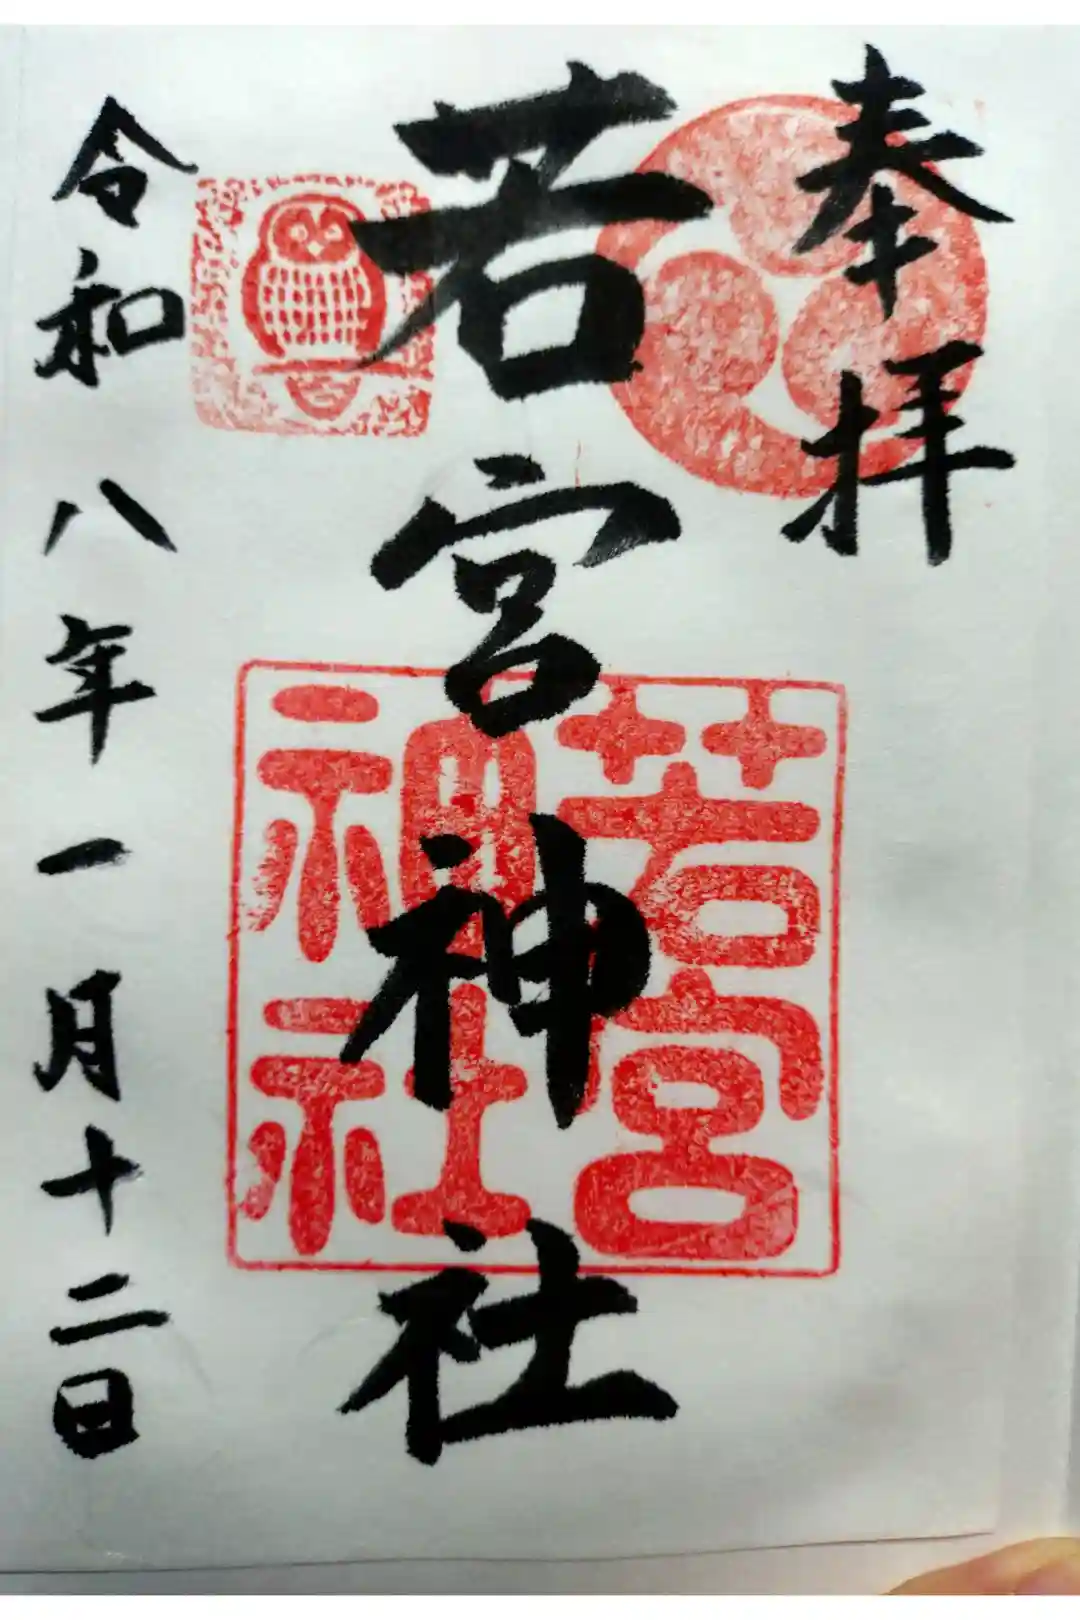 奉拝
若宮神社
若宮
神社
令和八年一月十二日